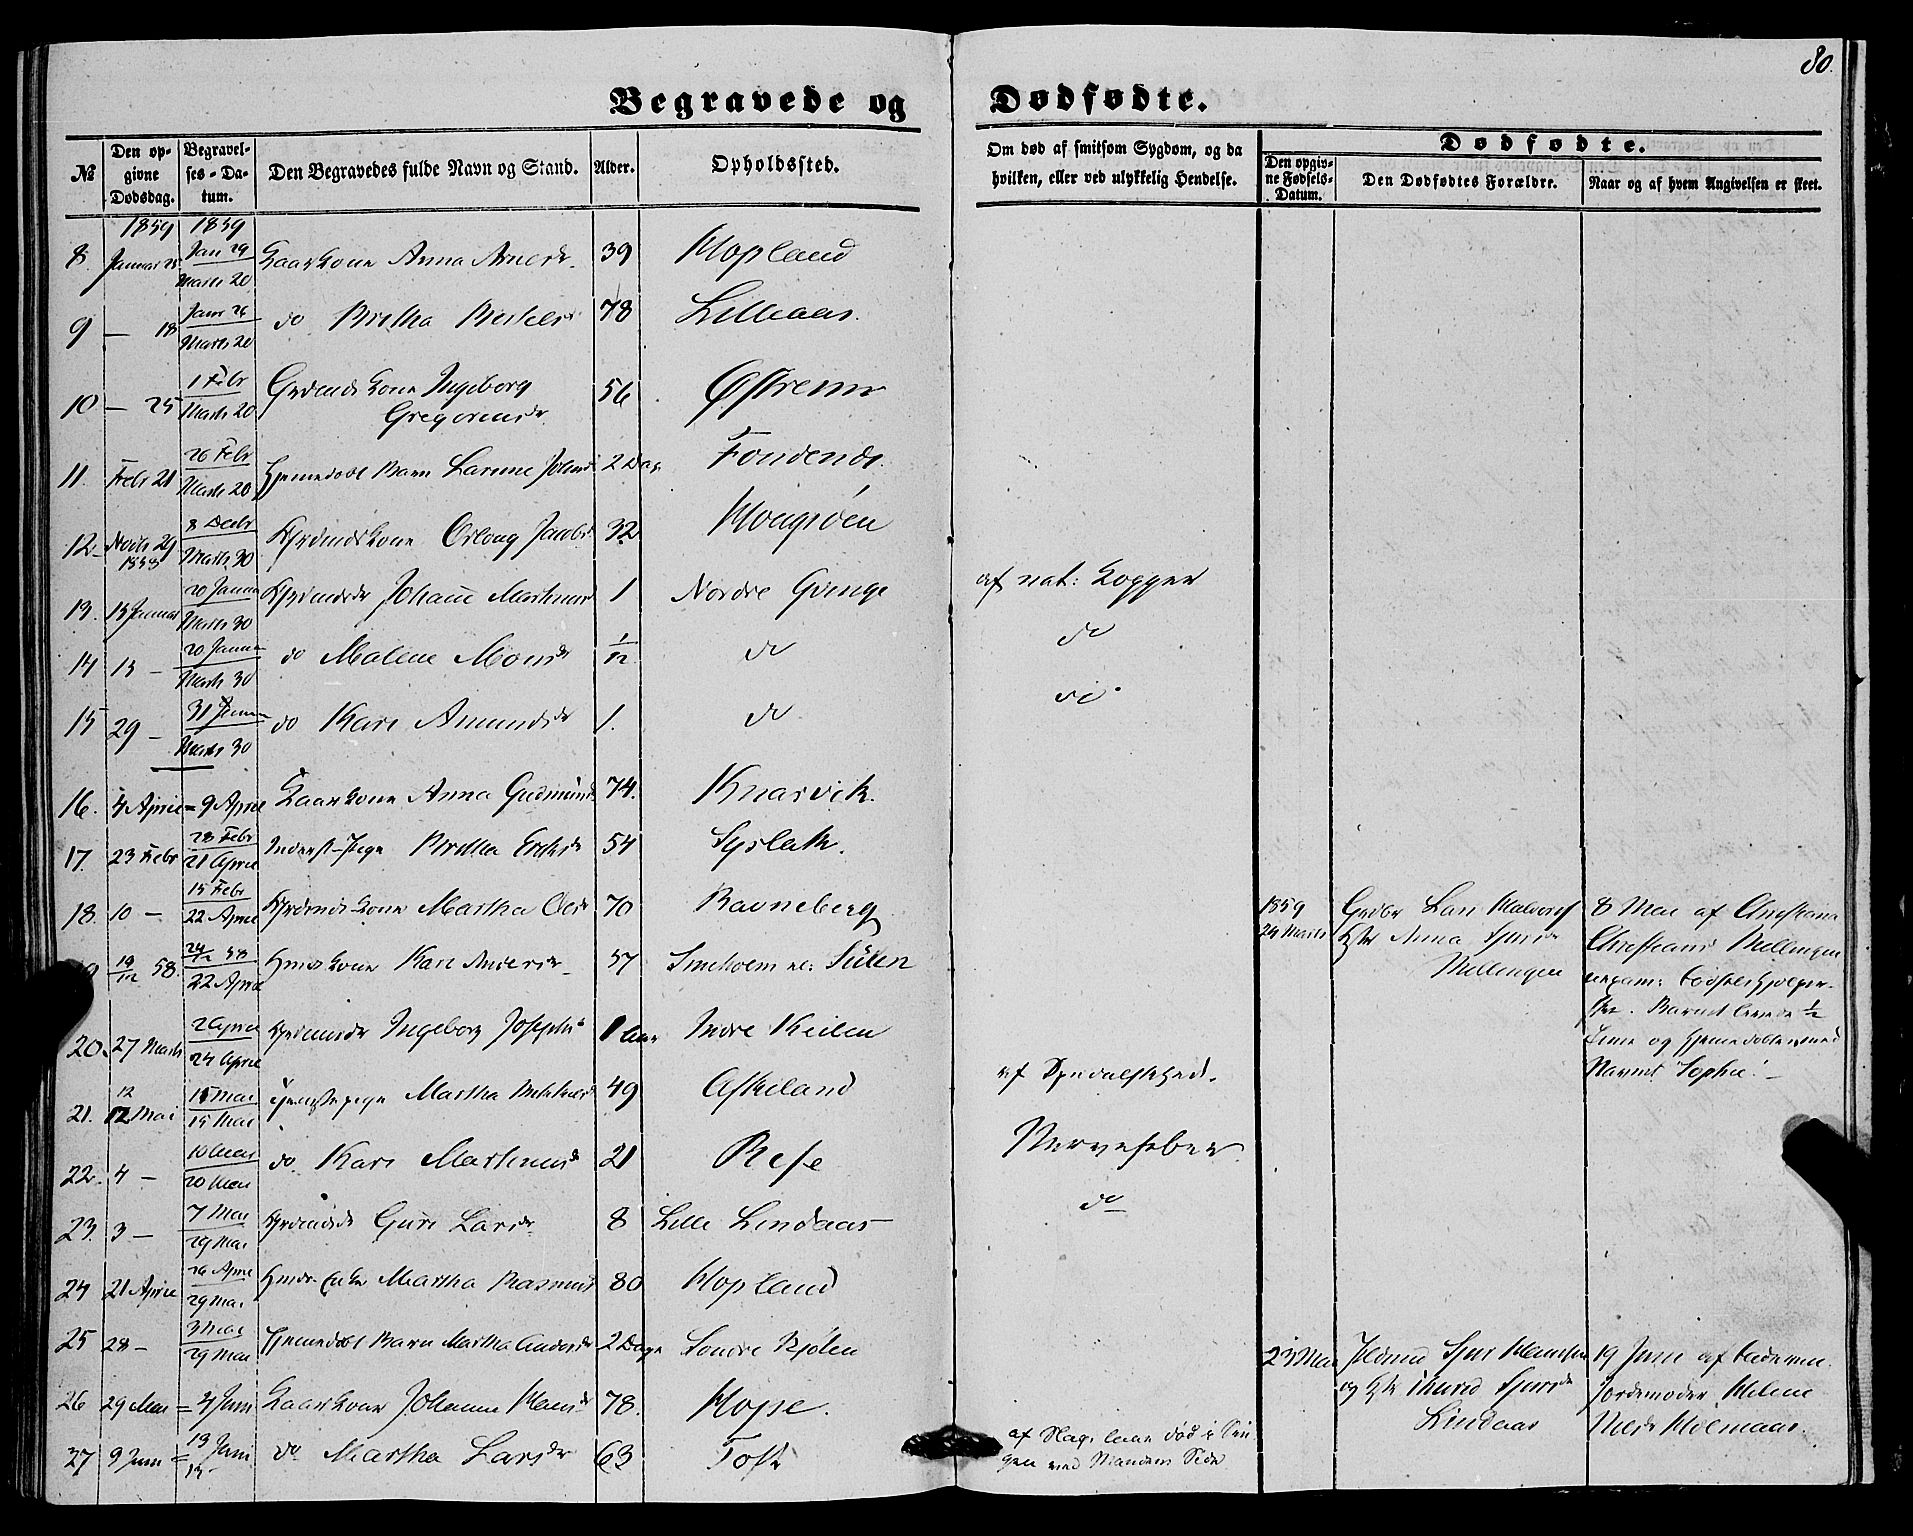 80.
Begravede og Dødfødte.
№ Den opgivne Dødsdag. Begravelses-Datum. Den Begravedes fulde Navn og Stand. Alder. Opholdssted. Om død af smitsom Sygdom, og da hvilken, eller ved ulykkelig Hendelse. Dødfødte. Den opgivne Fødsels-Datum. Den Dødfødtes Forældre. Naar og af hvem Angivelsen er skeet.
1859 1859
8. Januar 23 Jan 29 Marts 20 Kaarkone Anna Arnesdr 39 Hopland
9 — 18 Janr 26 Marts 20 do Brithe Bertelsdr 78 Lilleaas.
10 — 25 1 Febr Marts 20 Grdmds Kone Ingeborg
Gregoriusdr 56 Østrem
11. Febr 21 26 Febr Marts 20 Hjemedøbt Barn Larine Johansdr 2 Dage Fondenes
12 Novbr 29 1858 8 Decbr Marts 30 Grdmds Kone Jacobsdr 32
13. 13 Januar 20 Januar Marts 30 Grdmdsdr Johanne Martinusdr 1 Nordre Qvinge af nat: Kopper
14 13 — 20 Januar Marts 30 do Malene Monsdr 1/12 do do
15 29 — 31 Januar Marts 30 do Kari Amundsdr 1. do do
16. 4 April = 9 April Kaarkone Anna Gudmundsdr 74. Knarvik.
17. 23 Febr 28 Febr 21 April Inderst-Pige Brithe Ericksdr 54 Syslak.
18. 10 — 15 Febr 22 April Grdmds Kone Martha Olsdr 70 Ravneberg
1859 29 Marts Grdbr Lars Halvorsen
Hstr Anna Sjursdr
Mellingen
8 Mai af Christiana
Christiansdr Mellingen
uexam: Fødselshjelper-
ske. Barnet levede 1/2
Time og hjemedøbtes med
Navnet Sophie. —
19/12 58. 24/12 58 22 April Hmds Kone Kari Andersdr 57 Smeholm
20. 27 Marts 2 April 24 April Grdmdsdr Ingeborg Josephsdr 1 Aar Indre Keilen
21. 12 Mai 15 Mai 15 Mai Tjenestepige Martha Mikkelsdr 49 Askeland af Spedalskhed.
22. 4 — 10 Mai 20 Mai do Kari Martinusdr 21 Risе Nervefeber
23. 3 — 7 Mai 29 Mai Grdmdsdr Guri Larsdr 8 Lille Lindaas do
24 21 April 26 April 29 Mai Hmds Enke Martha Rasmusdr 80 Hopland
25 28 — 3 Mai 29 Mai Hjemedøbt Barn Martha Andersdr 2 Dage Søndre Kjølen
23 Mai Sjur Hansen
og Hstr Sjursdr
Lindaas
19 Juni af
Jordemoder Helene
Nilsdr Holmaas.
26 29 Mai = 4 Juni Kaarkone Johanne Hansdr 78. Hope.
27 9 Juni = 13 Juni 15 do Martha Larsdr 63 Toft af Slag, laae død i Sen
gen ved Mandens Side